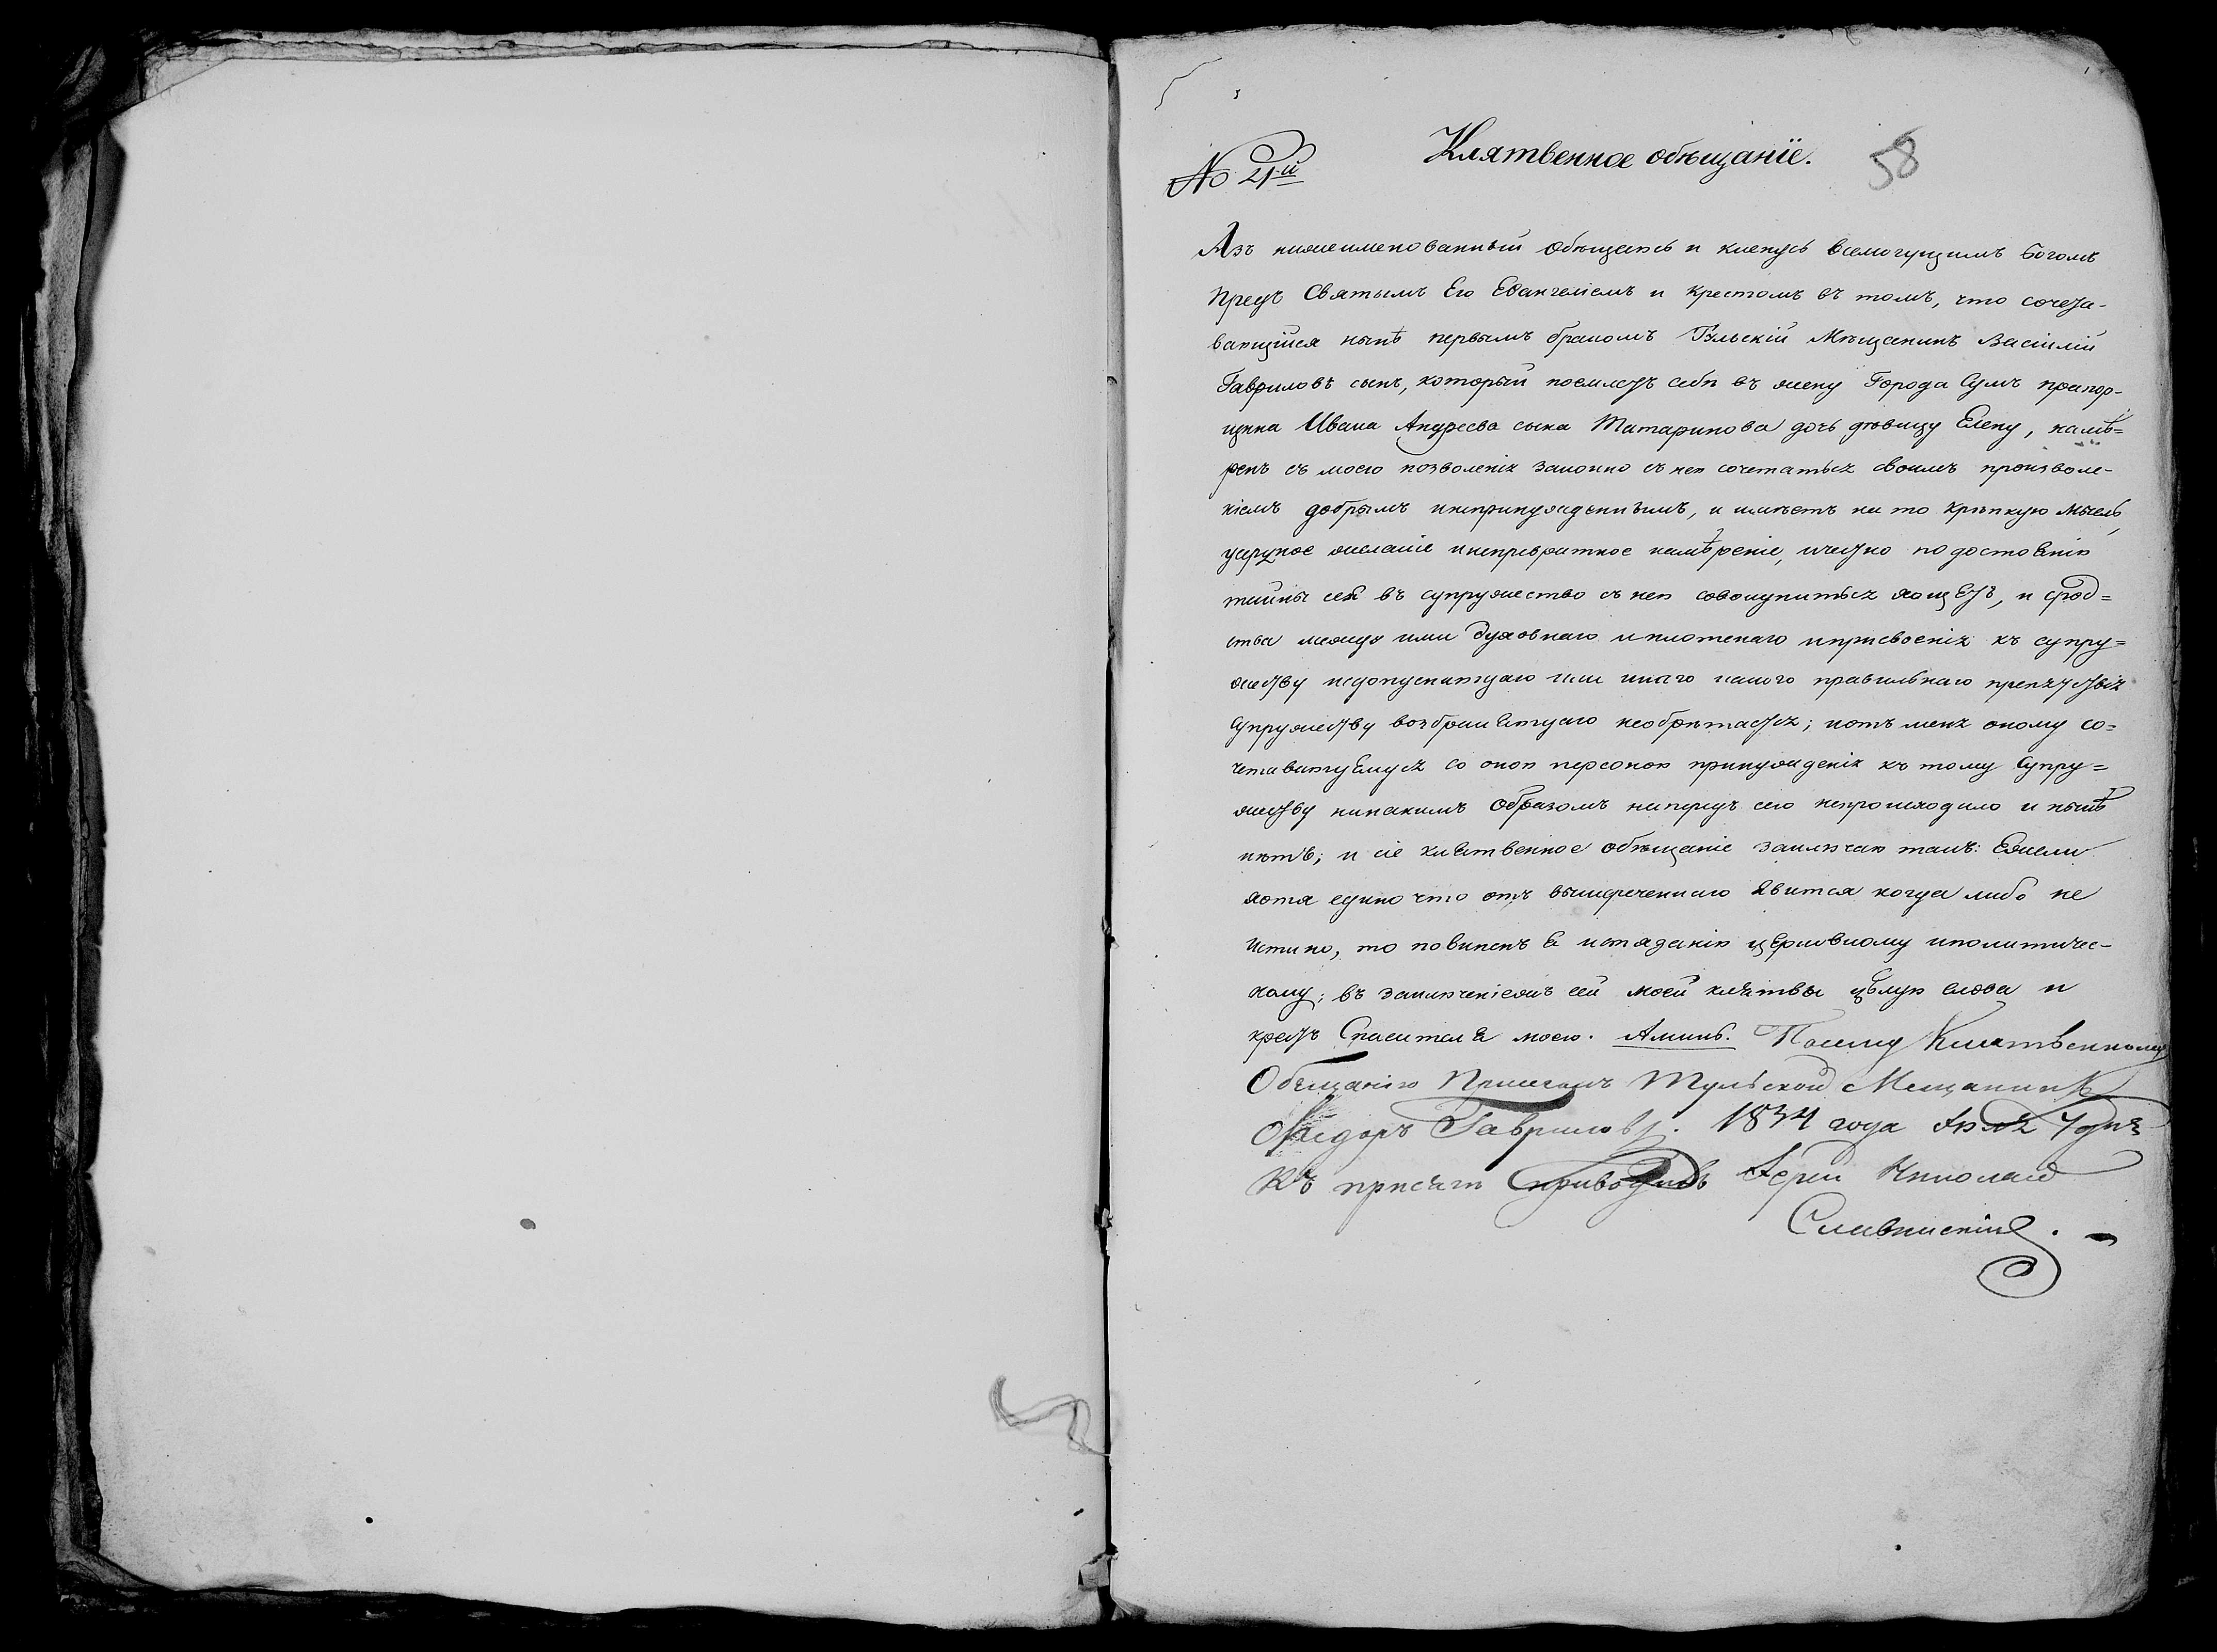 Клятвенное обѣщаніе. 58
№ 21й
Азъ нижеименованный обѣщаюсь и клянусь всемогущимъ Богомъ
предъ Святымъ Его Евангеліемъ и крестомъ въ томъ, что сочета-
вающійся нынѣ первымъ бракомъ Тульскій Мѣщанинъ Василій
Гавриловъ сынъ, который поемлетъ себѣ въ жену Города Сумъ прапор-
щика Ивана Андреева сына Татаринова дочь дѣвицу Елену, намѣ=
ренъ съ моего позволенія законно съ нею сочетаться своимъ произволе-
ніемъ добрымъ инепринужденнымъ, и имѣетъ на то крѣпкую мысль,
усердное желаніе инепревратное намѣреніе, ичестно подостоянію
тайны сея въ супружество съ нею совокупиться хощетъ, и срод=
ства между ими духовнаго иплотскаго иприсвоенія къ супру=
жеству недопускающаго или инаго какого правильнаго препятствія
супружеству возбраняющаго необрѣтается; иотъ меня оному со=
четавающемуся со оною персоною принужденія къ тому супру=
жеству никакимъ образомъ напредъ сего непроисходило и нынѣ
нѣтъ; и сіе клятвенное обѣщаніе заключаю такъ: Ежели
хотя едино что отъ вышереченнаго явится когда либо не
истино, то повиненъ я истязанію церковному иполитичес-
кому; въ заключеніежъ сей моей клятвы цѣлую слова и
крестъ Спасителя моего. Аминь. Посему Клятвенному
Обещанію Присегалъ Тульской Мещанинъ
Федоръ Гавриловъ. 1834 года Іюля 4 дня
Къ присягѣ приводилъ Іерей Николай